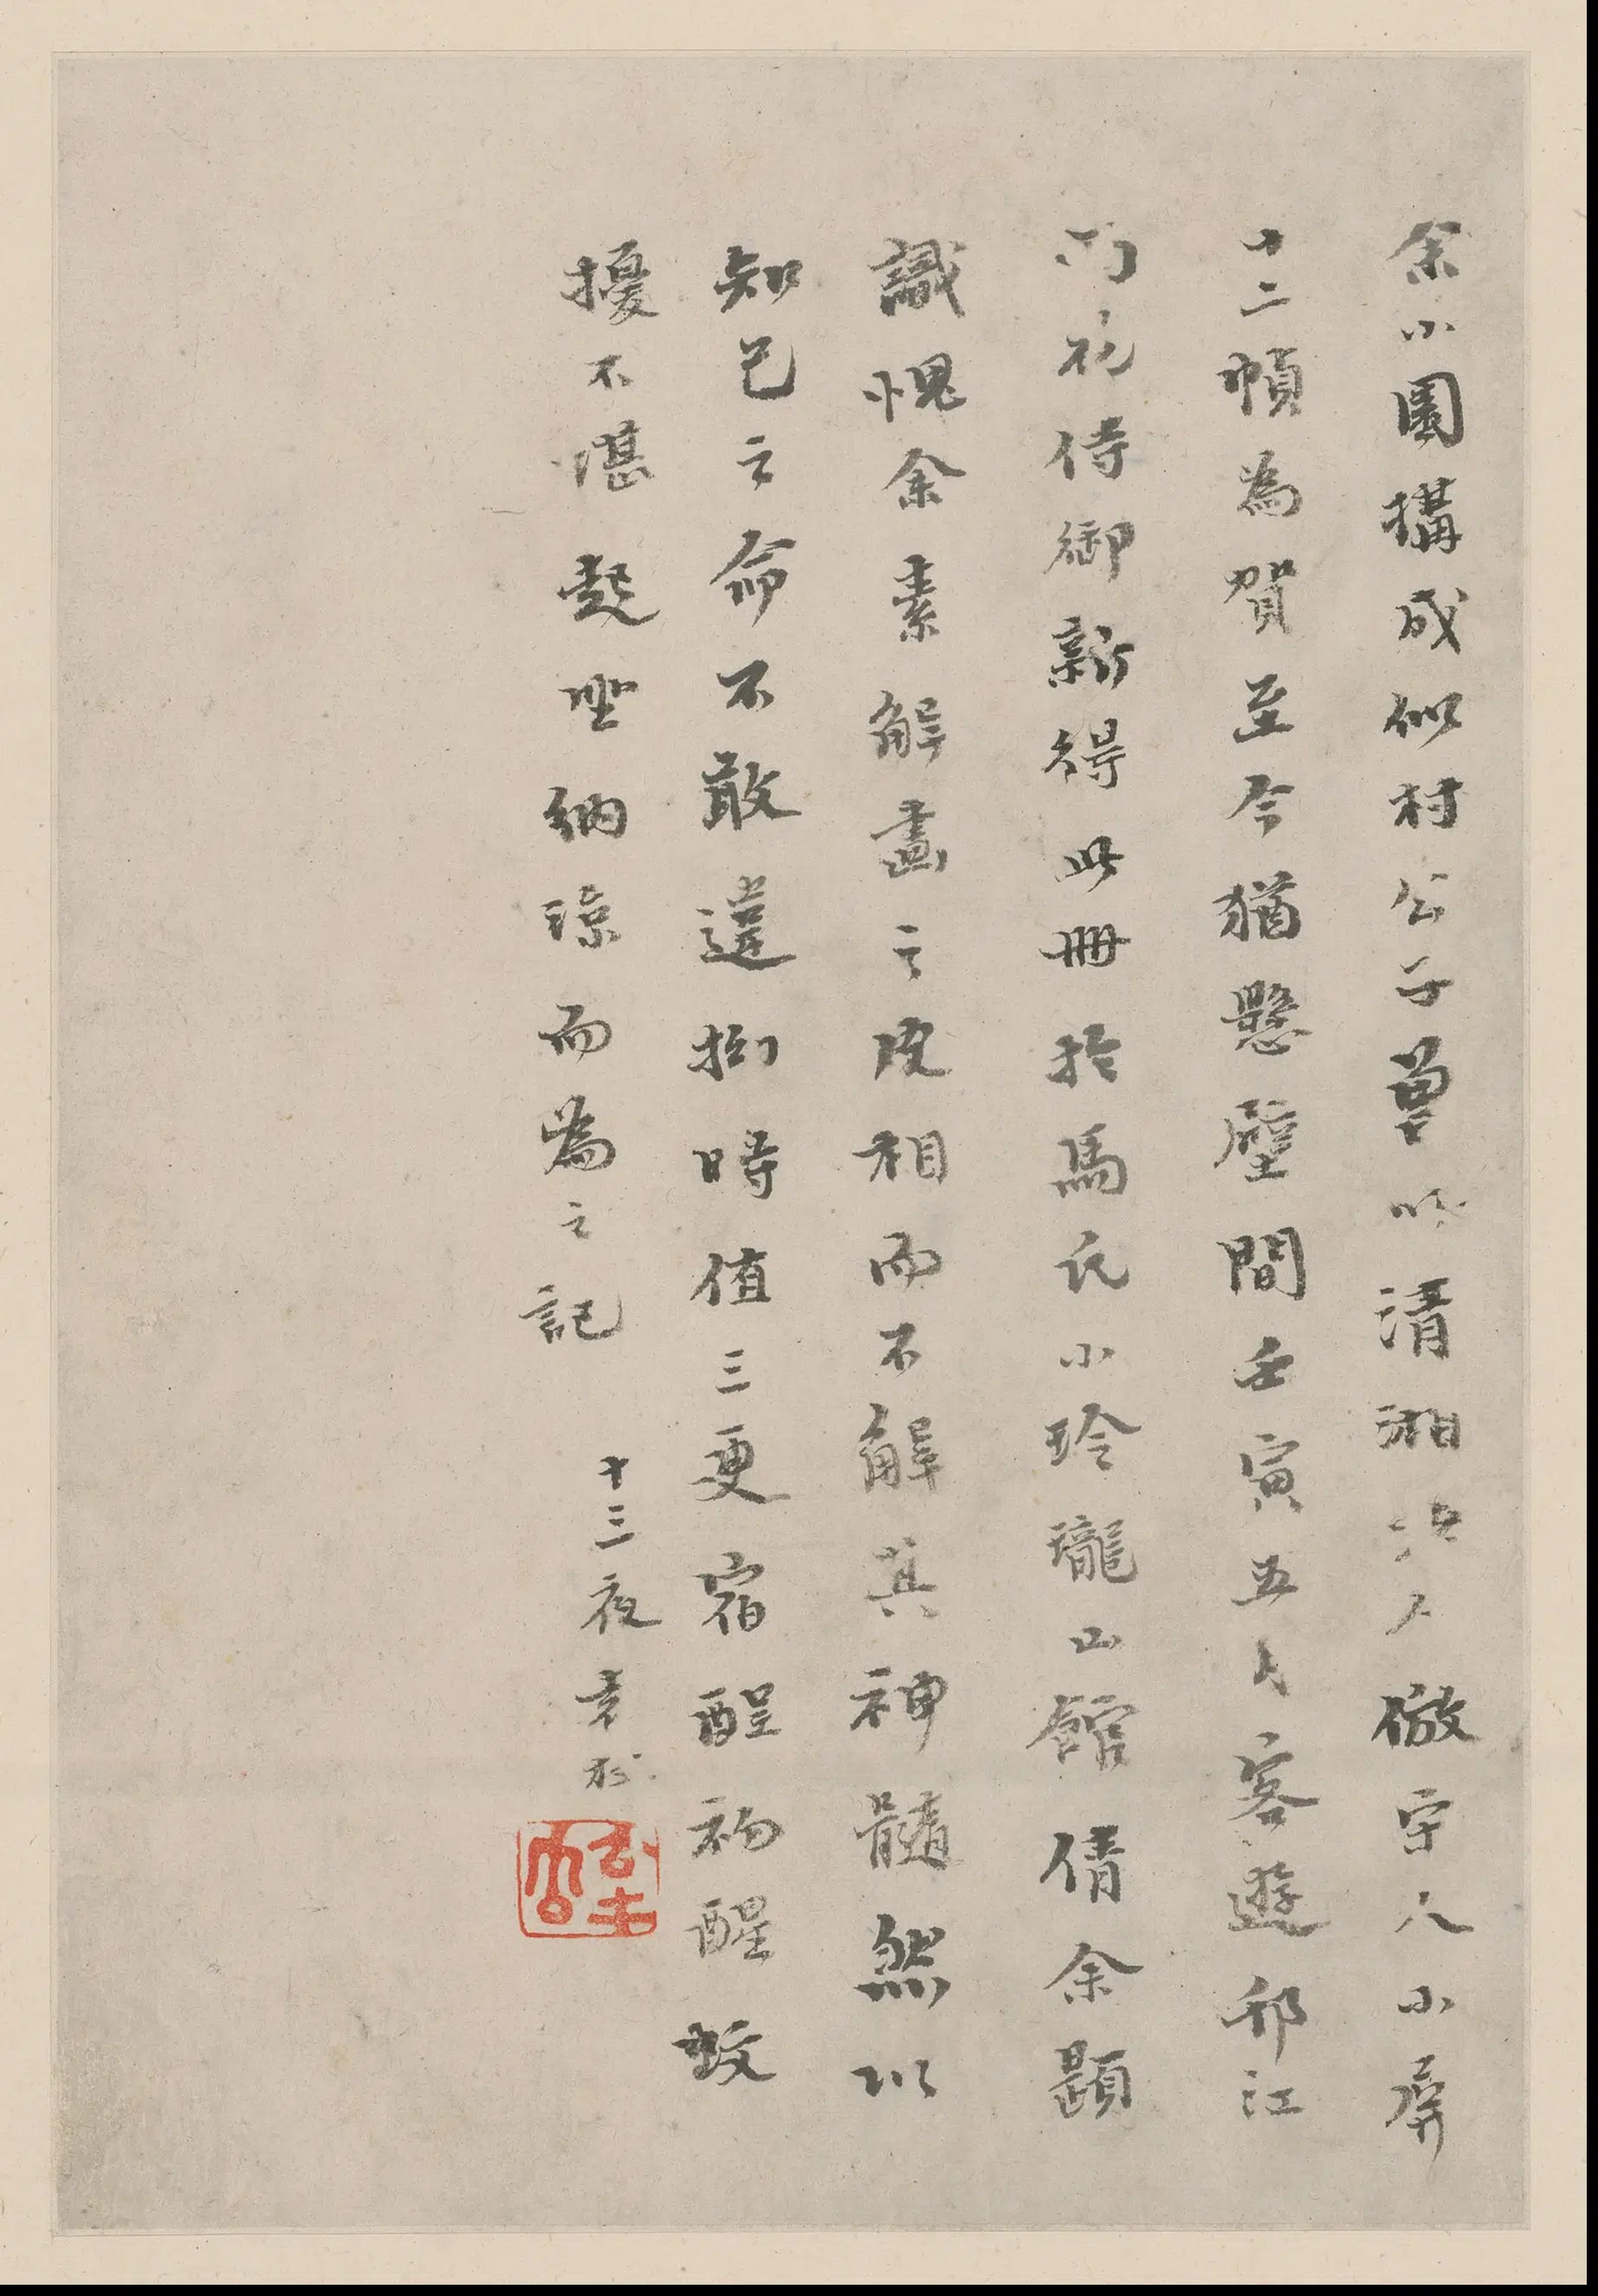 余小園構成似村公子曾以清湘老人倣宋人小屏
十二幀為賀至今猶懸壁間壬寅五月客遊邗江
侍御新得此冊於馬氏小玲瓏山館倩余題
識愧余素解畫之皮相而不解其神髓然以
知己之命不敢違拗時值三更宿酲初醒蚊
擾不堪起坐納涼而為之記 十三夜袁枚